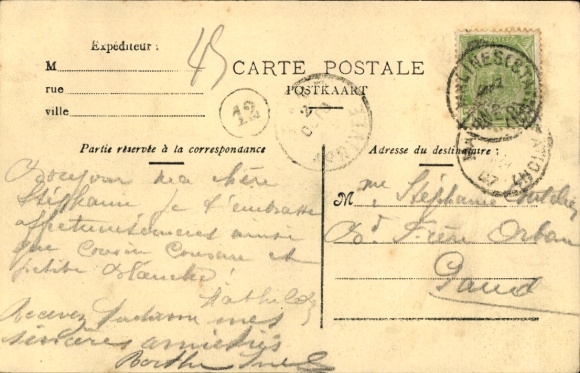 Expéditeur :
M
rue
ville
45
CARTE POSTALE
POSTKAART
12
Partie réservée à la correspondance
Adresse du destinataire :
Bonjour ma chère
Stéphanie je t'embrasse
affectueusement ainsi
que Cousin Cousine et
petite Blanche!
Mathilde
Recevez Madame mes
sincères amitiés
Berthe
Mme Stéphanie
Bd Frère Orban
Gand
MALINES (STATION)